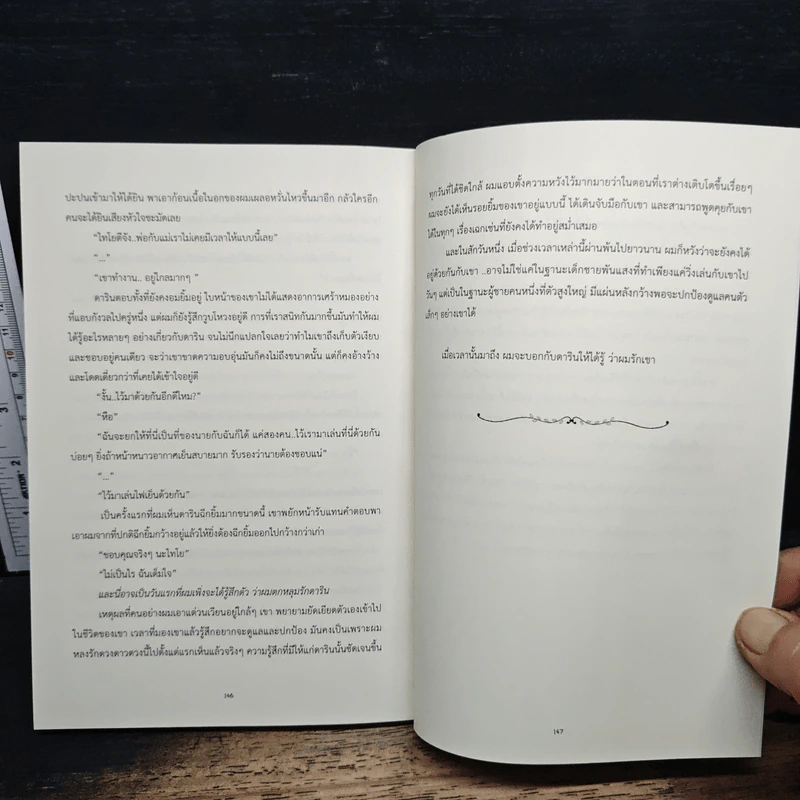 ปะปนเข้ามาให้ได้ยิน พาเอาก้อนเนื้อในอกของผมเผลอหวั่นไหวขึ้นมาอีก กลัวใครอีก
คนจะได้ยินเสียงหัวใจชะมัดเลย
“ไทโยดีจัง..พ่อกับแม่เราไม่เคยมีเวลาให้แบบนี้เลย”
“...”
“เขาทำงาน.. อยู่ไกลมากๆ ”
ดารินตอบทั้งที่ยังคงอมยิ้มอยู่ ใบหน้าของเขาไม่ได้แสดงอาการเศร้าหมองอย่าง
ที่แอบกังวลไปครู่หนึ่ง แต่ผมก็ยังรู้สึกวูบโหวงอยู่ดี การที่เราสนิทกันมากขึ้นมันทำให้ผม
ได้รู้อะไรหลายๆ อย่างเกี่ยวกับดาริน จนไม่นึกแปลกใจเลยว่าทำไมเขาถึงเก็บตัวเงียบ
และชอบอยู่คนเดียว จะว่าเขาขาดความอบอุ่นมันก็คงไม่ถึงขนาดนั้น แต่ก็คงอ้างว้าง
และโดดเดี่ยวกว่าที่เคยได้เข้าใจอยู่ดี
“งั้น..ไว้มาด้วยกันอีกดีไหม?”
“หือ”
“ฉันจะยกให้ที่นี่เป็นที่ของนายกับฉันก็ได้ แค่สองคน..ไว้เรามาเล่นที่นี่ด้วยกัน
บ่อยๆ ยิ่งถ้าหน้าหนาวอากาศเย็นสบายมาก รับรองว่านายต้องชอบแน่”
“...”
“ไว้มาเล่นไฟเย็นด้วยกัน”
เป็นครั้งแรกที่ผมเห็นดารินฉีกยิ้มมากขนาดนี้ เขาพยักหน้ารับแทนคำตอบพา
เอาผมจากที่ปกติฉีกยิ้มกว้างอยู่แล้วให้ยิ่งต้องฉีกยิ้มออกไปกว้างกว่าเก่า
“ขอบคุณจริงๆ นะไทโย”
“ไม่เป็นไร ฉันเต็มใจ”
และนี่อาจเป็นวันแรกที่ผมเพิ่งจะได้รู้สึกตัว ว่าผมตกหลุมรักดาริน
เหตุผลที่คนอย่างผมเอาแต่วนเวียนอยู่ใกล้ๆ เขา พยายามยัดเยียดตัวเองเข้าไป
ในชีวิตของเขา เวลาที่มองเขาแล้วรู้สึกอยากจะดูแลและปกป้อง มันคงเป็นเพราะผม
หลงรักดวงดาวดวงนี้ไปตั้งแต่แรกเห็นแล้วจริงๆ ความรู้สึกที่มีให้แก่ดารินนั้นชัดเจนขึ้น
146
ทุกวันที่ได้ชิดใกล้ ผมแอบตั้งความหวังไว้มากมายว่าในตอนที่เราต่างเติบโตขึ้นเรื่อยๆ
ผมจะยังได้เห็นรอยยิ้มของเขาอยู่แบบนี้ ได้เดินจับมือกับเขา และสามารถพูดคุยกับเขา
ได้ในทุกๆ เรื่องเฉกเช่นที่ยังคงได้ทำอยู่สม่ำเสมอ
และในสักวันหนึ่ง เมื่อช่วงเวลาเหล่านี้ผ่านพ้นไปยาวนาน ผมก็หวังว่าจะยังคงได้
อยู่ด้วยกันกับเขา ..อาจไม่ใช่แค่ในฐานะเด็กชายพันแสงที่ทำเพียงแค่วิ่งเล่นกับเขาไป
วันๆ แต่เป็นในฐานะผู้ชายคนหนึ่งที่ตัวสูงใหญ่ มีแผ่นหลังกว้างพอจะปกป้องดูแลคนตัว
เล็กๆ อย่างเขาได้
เมื่อเวลานั้นมาถึง ผมจะบอกกับดารินให้ได้รู้ ว่าผมรักเขา
147